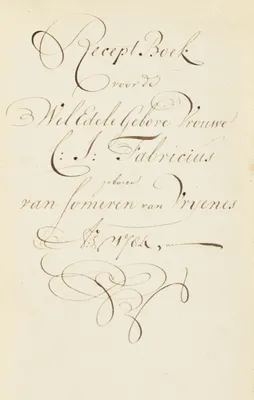 Recept Boek
voor de
Wel Edele Gebore Vrouwe
C: J: Fabricius
geboren
van Someren van Vrijenes